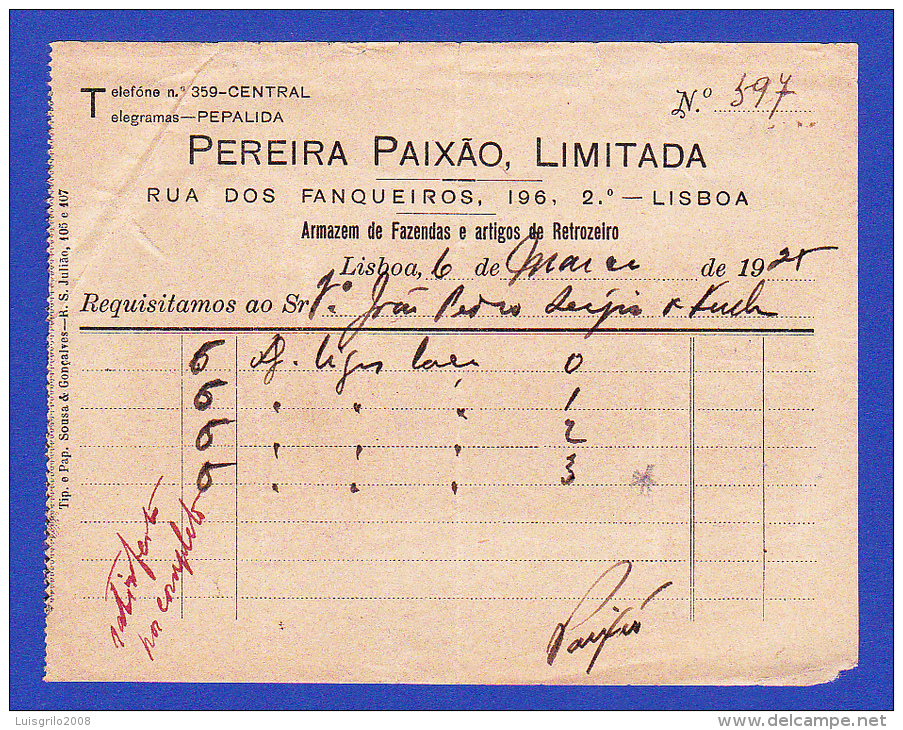 Telefóne n.º 359-CENTRAL
Telegramas—PEPALIDA
N.º 597
PEREIRA PAIXÃO, LIMITADA
RUA DOS FANQUEIROS, 196, 2.º — LISBOA
Armazem de Fazendas e artigos de Retrozeiro
Lisboa, 6 de Março de 1925
Requisitamos ao Sr João Pedro Sérgio
6 0
6 " " " 1
6 " " " 2
6 " " " 3
satisfeito
por completo
Paixão
Tip. e Pap. Sousa & Gonçalves—R. S. Julião, 105 e 107
Luisgrilo2008
www.delcampe.net